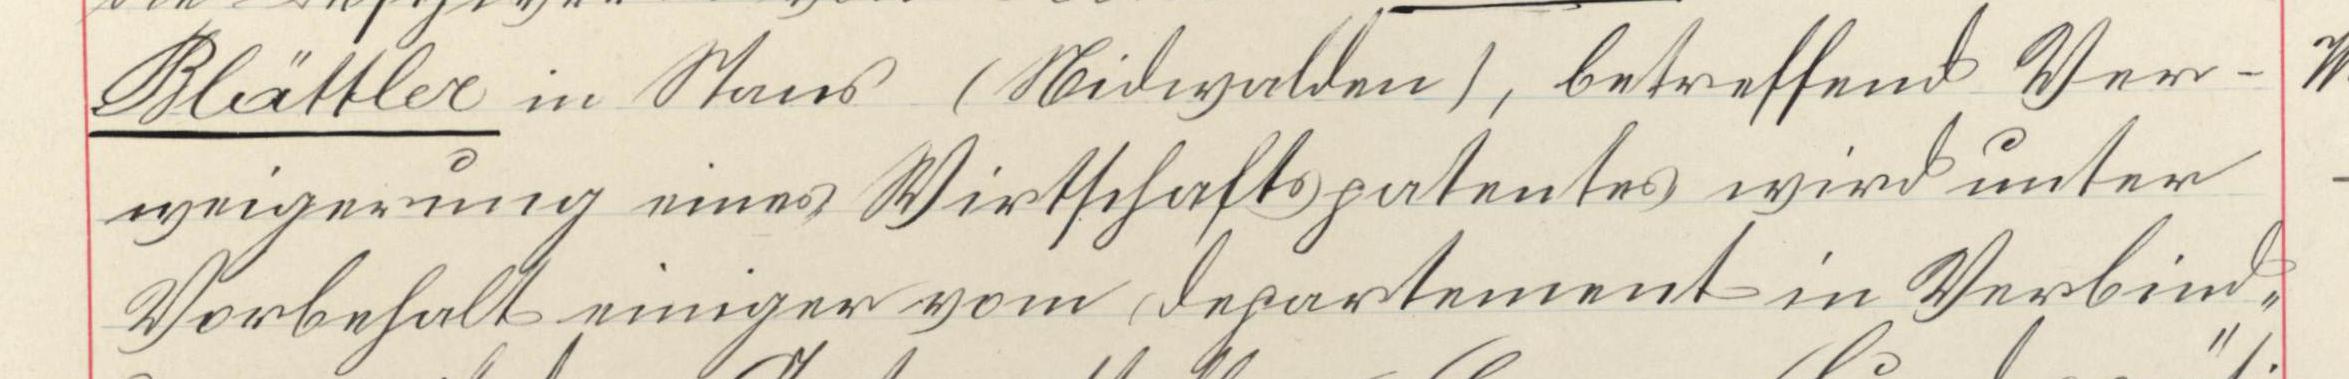 Blättler in Stans (Nidwalden), betreffend Ver-
weigerung eines Wirtschaftspatentes wird unter
Vorbehalt einiger vom Departement in Verbind-